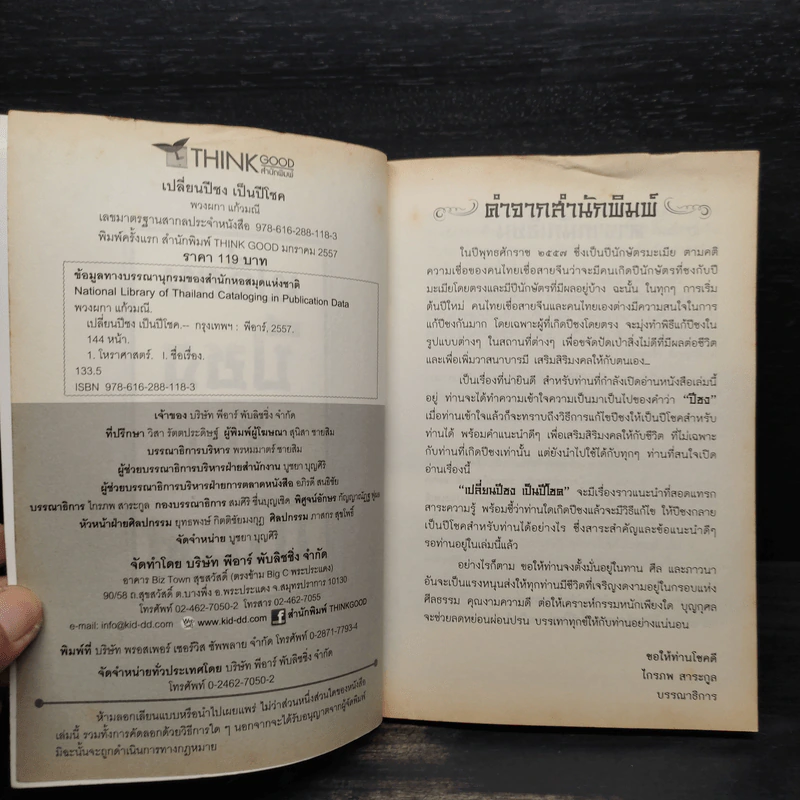 THINK GOOD
สำนักพิมพ์
เปลี่ยนปีชง เป็นปีโชค
พวงผกา แก้วมณี
เลขมาตรฐานสากลประจำหนังสือ 978-616-288-118-3
พิมพ์ครั้งแรก สำนักพิมพ์ THINK GOOD มกราคม 2557
ราคา 119 บาท
ข้อมูลทางบรรณานุกรมของสำนักหอสมุดแห่งชาติ
National Library of Thailand Cataloging in Publication Data
พวงผกา แก้วมณี.
เปลี่ยนปีชง เป็นปีโชค.-- กรุงเทพฯ : พีอาร์, 2557.
144 หน้า.
1. โหราศาสตร์. I. ชื่อเรื่อง.
133.5
ISBN 978-616-288-118-3
เจ้าของ บริษัท พีอาร์ พับลิชชิ่ง จำกัด
ที่ปรึกษา วิสา รัตตประดิษฐ์ ผู้พิมพ์ผู้โฆษณา สุนิสา ชายสิม
บรรณาธิการบริหาร พรหมมาตร์ ชายสิม
ผู้ช่วยบรรณาธิการบริหารฝ่ายสำนักงาน บูชยา บุญศิริ
ผู้ช่วยบรรณาธิการบริหารฝ่ายการตลาดหนังสือ อภิรดี สนธิชัย
บรรณาธิการ ไกรภพ สาระกูล กองบรรณาธิการ สมศิริ ชื่นบุญเชิด พิสูจน์อักษร กัญญาณัฏฐ
หัวหน้าฝ่ายศิลปกรรม ยุทธพงษ์ กิตติชัยมงกุฎ ศิลปกรรม ภาสกร สุขโพธิ์
จัดจำหน่าย บูชยา บุญศิริ
จัดทำโดย บริษัท พีอาร์ พับลิชชิ่ง จำกัด
อาคาร Biz Town สุขสวัสดิ์ (ตรงข้าม Big C พระประแดง)
90/58 ถ.สุขสวัสดิ์ ต.บางพึ่ง อ.พระประแดง จ.สมุทรปราการ 10130
โทรศัพท์ 02-462-7050-2 โทรสาร 02-462-7055
e-mail: info@kid-dd.com www.kid-dd.com สำนักพิมพ์ THINKGOOD
พิมพ์ที่ บริษัท พรอสเพอร์ เซอร์วิส ซัพพลาย จำกัด โทรศัพท์ 0-2871-7793-4
จัดจำหน่ายทั่วประเทศโดย บริษัท พีอาร์ พับลิชชิ่ง จำกัด
โทรศัพท์ 0-2462-7050-2
ห้ามลอกเลียนแบบหรือนำไปเผยแพร่ ไม่ว่าส่วนหนึ่งส่วนใดของหนังสือ
เล่มนี้ รวมทั้งการคัดลอกด้วยวิธีการใด ๆ นอกจากจะได้รับอนุญาตจากผู้จัดพิมพ์
มิฉะนั้นจะถูกดำเนินการทางกฎหมาย
คำจากสำนักพิมพ์
ในปีพุทธศักราช ๒๕๕๗ ซึ่งเป็นปีนักษัตรมะเมีย ตามคติ
ความเชื่อของคนไทยเชื้อสายจีนว่าจะมีคนเกิดปีนักษัตรที่ชงกับปี
มะเมียโดยตรงและมีปีนักษัตรที่มีผลอยู่บ้าง ฉะนั้น ในทุกๆ การเริ่ม
ต้นปีใหม่ คนไทยเชื้อสายจีนและคนไทยเองต่างมีความสนใจในการ
แก้ปีชงกันมาก โดยเฉพาะผู้ที่เกิดปีชงโดยตรง จะมุ่งทำพิธีแก้ปีชงใน
รูปแบบต่างๆ ในสถานที่ต่างๆ เพื่อขจัดปัดเป่าสิ่งไม่ดีที่มีผลต่อชีวิต
และเพื่อเพิ่มวาสนาบารมี เสริมสิริมงคลให้กับตนเอง...
เป็นเรื่องที่น่ายินดี สำหรับท่านที่กำลังเปิดอ่านหนังสือเล่มนี้
อยู่ ท่านจะได้ทำความเข้าใจความเป็นมาเป็นไปของคำว่า “ปีชง”
เมื่อท่านเข้าใจแล้วก็จะทราบถึงวิธีการแก้ไขปีชงให้เป็นปีโชคสำหรับ
ท่านได้ พร้อมคำแนะนำดีๆ เพื่อเสริมสิริมงคลให้กับชีวิต ที่ไม่เฉพาะ
กับท่านที่เกิดปีชงเท่านั้น แต่ยังนำไปใช้ได้กับทุกๆ ท่านที่สนใจเปิด
อ่านเรื่องนี้
“เปลี่ยนปีชง เป็นปีโชค” จะมีเรื่องราวแนะนำที่สอดแทรก
สาระความรู้ พร้อมชี้ว่าท่านใดเกิดปีชงแล้วจะมีวิธีแก้ไข ให้ปีชงกลาย
เป็นปีโชคสำหรับท่านได้อย่างไร ซึ่งสาระสำคัญและข้อแนะนำดีๆ
รอท่านอยู่ในเล่มนี้แล้ว
อย่างไรก็ตาม ขอให้ท่านจงตั้งมั่นอยู่ในทาน ศีล และภาวนา
อันจะเป็นแรงหนุนส่งให้ทุกท่านมีชีวิตที่เจริญงดงามอยู่ในกรอบแห่ง
ศีลธรรม คุณงามความดี ต่อให้เคราะห์กรรมหนักเพียงใด บุญกุศล
จะช่วยลดหย่อนผ่อนปรน บรรเทาทุกข์ให้กับท่านอย่างแน่นอน
ขอให้ท่านโชคดี
ไกรภพ สาระกูล
บรรณาธิการ